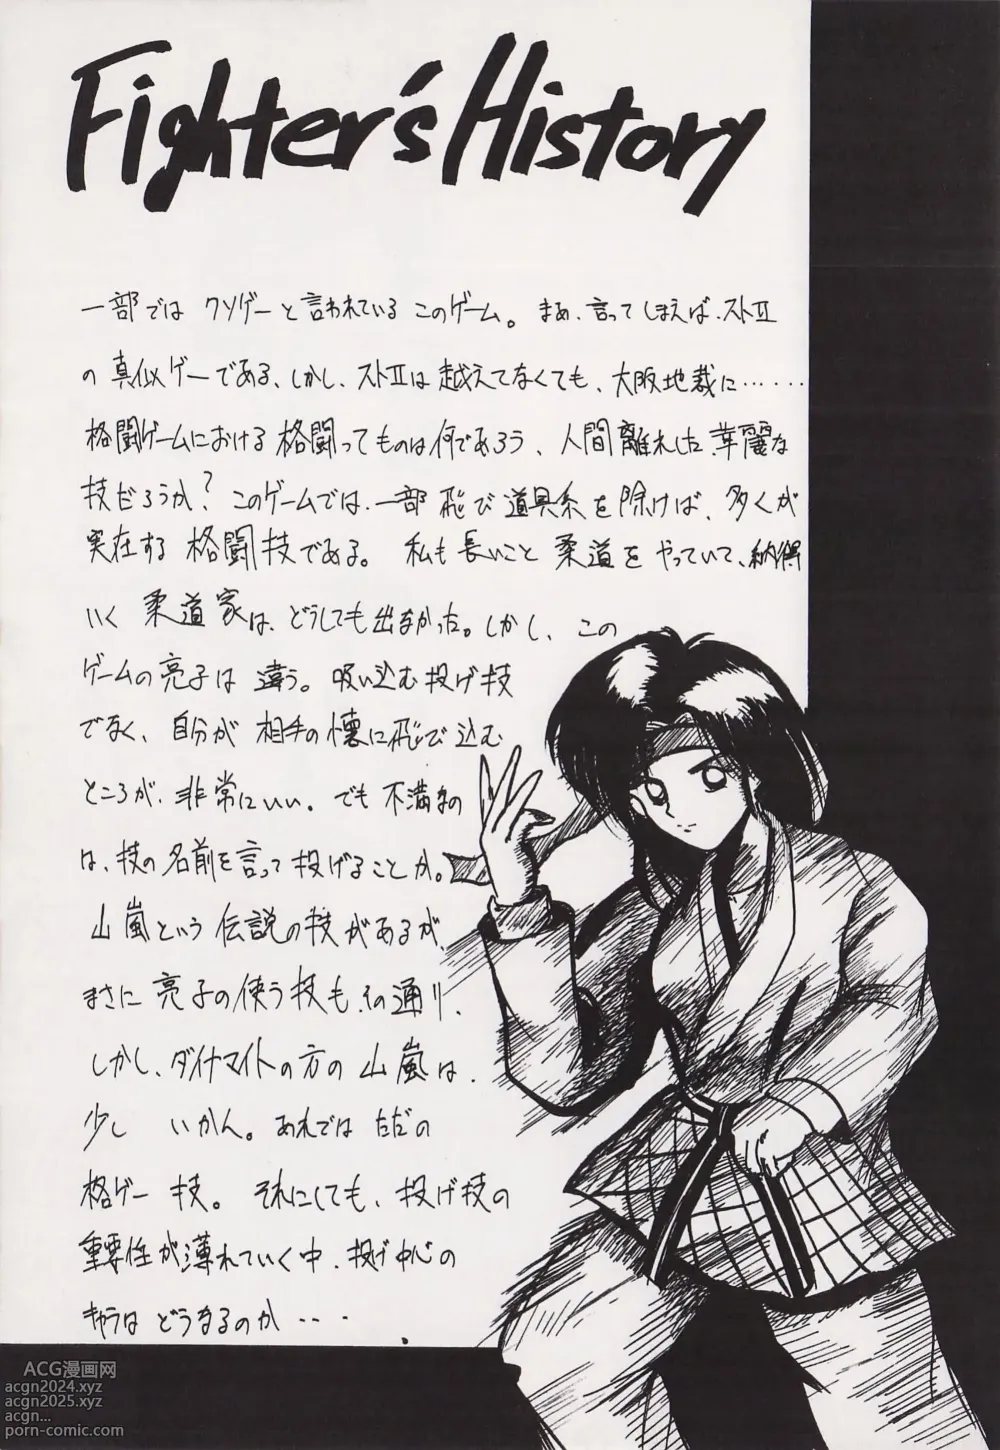 Fighter's History
一部では クソゲーと言われている このゲーム。まあ、言ってしまえば、ストⅡ
の 真似ゲーである、しかし、ストⅡは 越えてなくても、大阪地裁に……
格闘ゲームにおける 格闘ってものは何であろう、人間離れした華麗な
技だろうか? このゲームでは、一部 飛び道具系を除けば、多くが
実在する 格闘技である。私も長いこと 柔道を やっていて、納得
いく 柔道家は、どうしても出なかった。しかし、この
ゲームの亮子は 違う。吸い込む投げ技
でなく、自分が 相手の懐に飛び込む
ところが、非常にいい。でも不満なの
は、技の名前を言って投げることか。
山嵐という 伝説の技があるが、
まさに 亮子の使う技も、その通り、
しかし、ダイナマイトの方の 山嵐は、
少し いかん。あれでは ただの
格ゲー 技。それにしても、投げ技の
重要性が薄れていく中、投げ中心の
キャラは どうなるのか・・・
ACG漫画网
acgn2024.xyz
acgn2025.xyz
acgn...
porn-comic.com